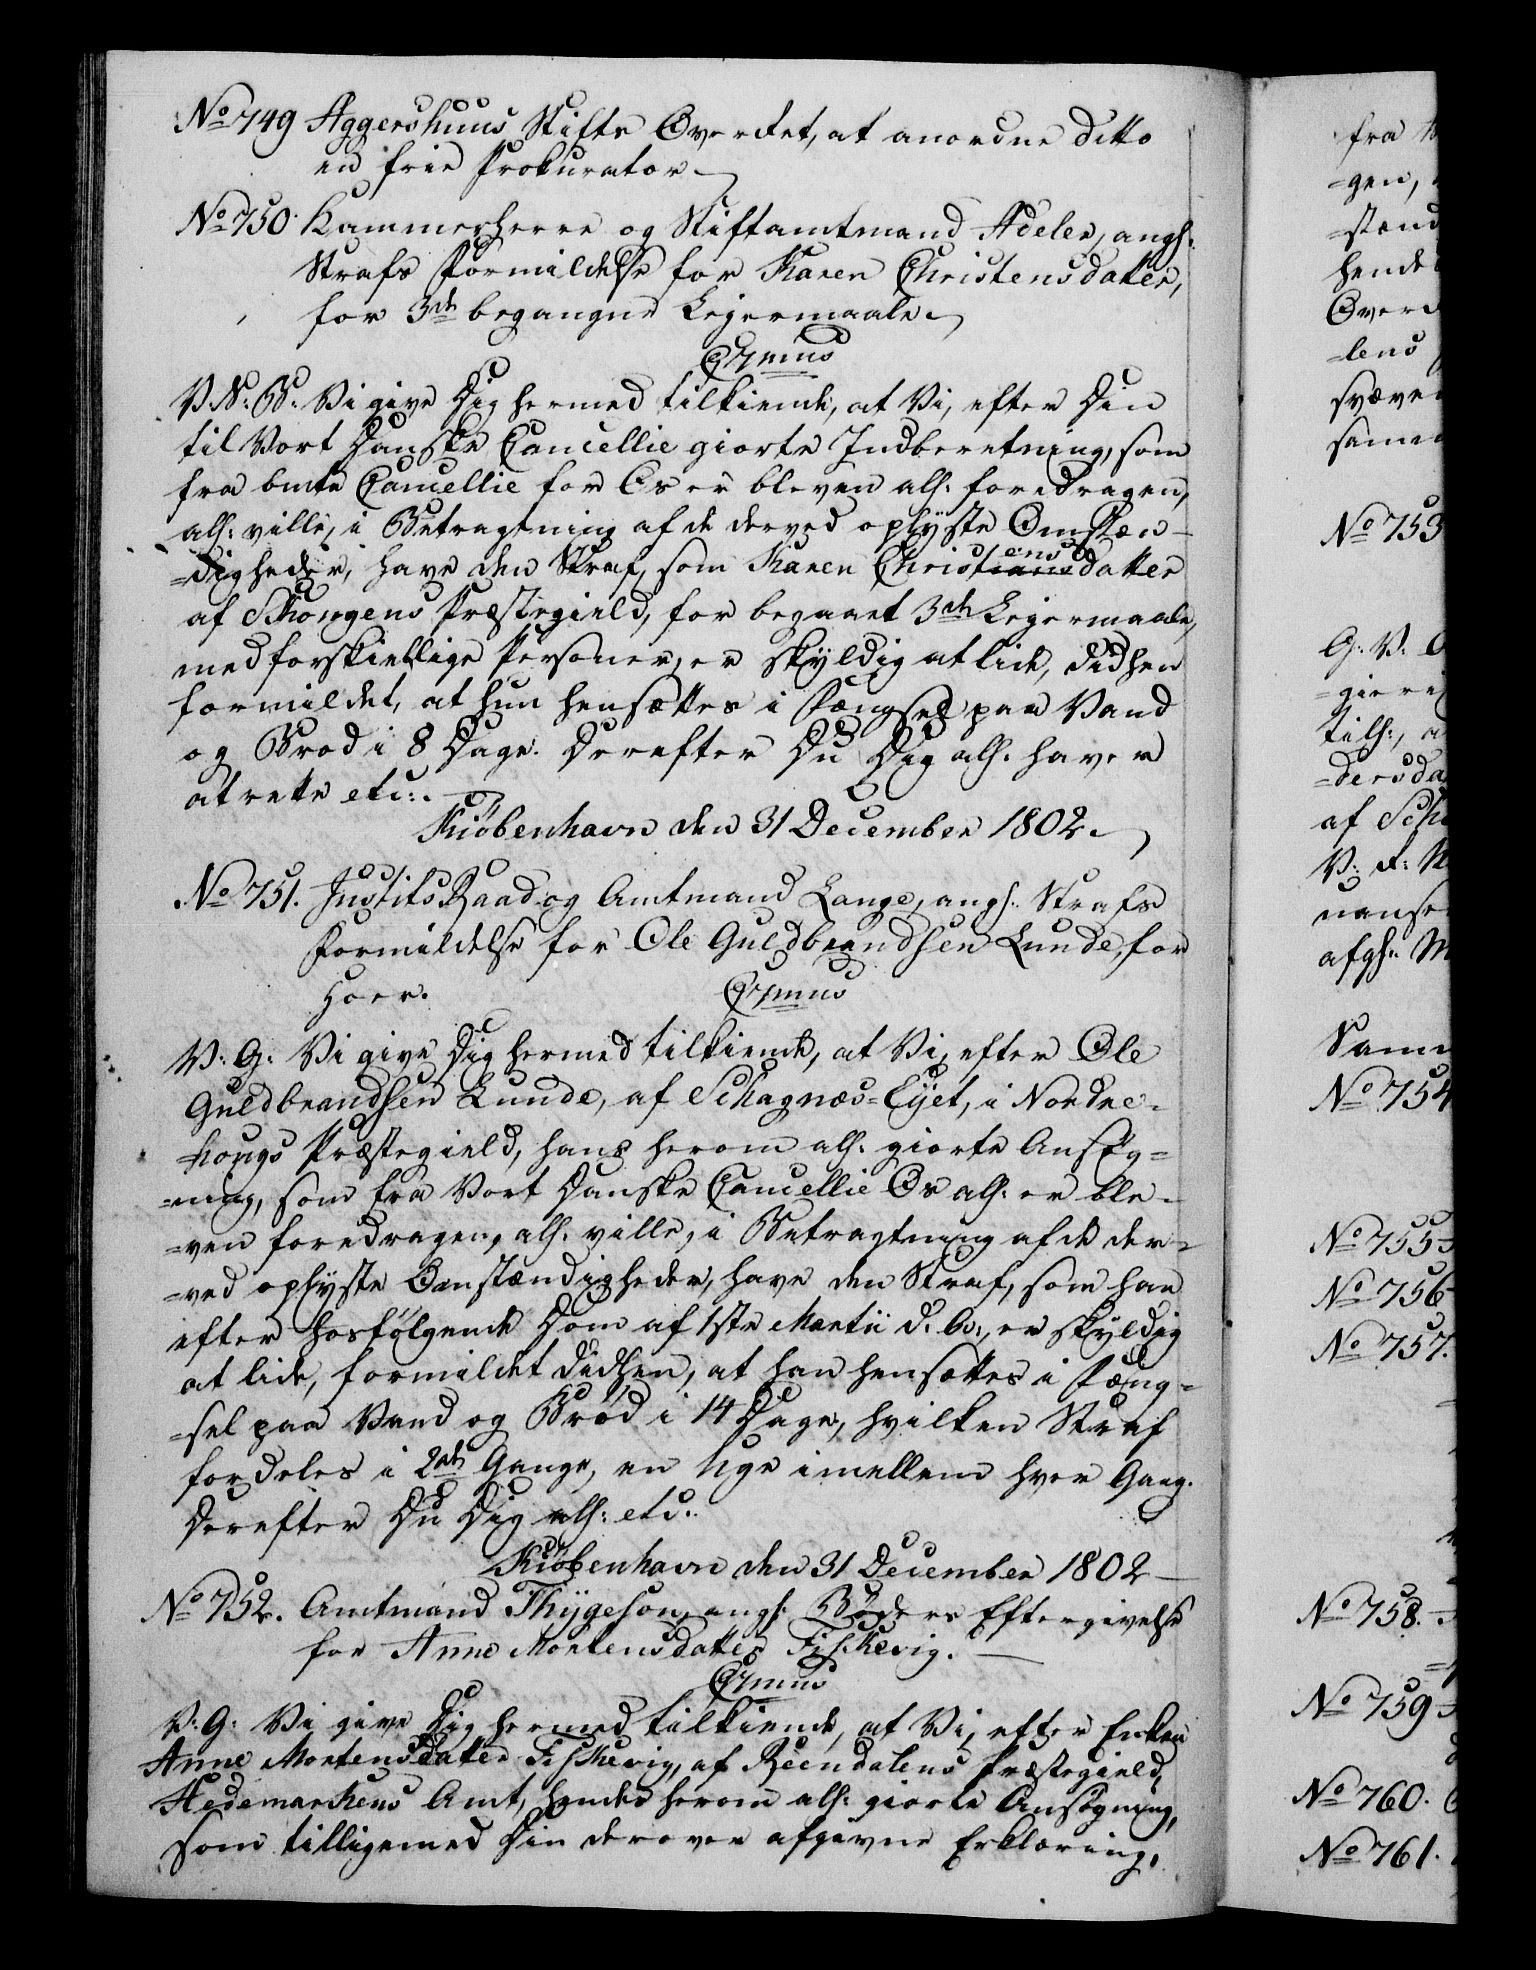 No 749 Aggershuus Stifts Overdet, at anordne ditto
en frie Prokurator
No 750. Kammerherre og Stiftamtmand Adeler, angh.
Strafs Formildelse for Karen Christensdatter,
for 3de begangne Lejermaale
C7mus
V. S: B: Vi give Dig hermed tilkiende, at Vi, efter Din
til Vort Danske Cancellie giorte Indberetning, som
fra bmte Cancellie for Os er bleven alh: foredragen,
alh: ville, i Betragtning af de derved oplyste Omstæn-
=digheder, have den Straf, som Karen Christiansensdatter
af Schougens Præstegield, for begaaet 3de Lejermaale,
med forskiellige Personer, er skyldig at lide, didhen
formildet, at hun hensættes i Fængsel paa Vand
og Brød i 8 Dage. Derefter Du Dig alh: haver
at rette etc:.
Kiöbenhavn den 31 December 1802
No 751. JustitsRaad og Amtmand Lange, angh. Strafs
Formildelse for Ole Guldbrandsen Lunde, for
Hoer.
C7mus
V: G: Vi give Dig hermed tilkiende, at Vi, efter Ole
Guldbrandsen Lunde, af Schagnæs=Eyet, i Nordre-
=hougs Præstegield, hans herom alh: giorte Ansøg=
=ning, som fra Vort Danske Cancellie Os alh: er ble-
=ven foredragen, alh: ville, i Betragtning af de der=
=ved oplyste Omstændigheder, have den Straf, som han
efter hosfölgende Dom af 1ste Martii d: A:, er skyldig
at lide, formildet didhen, at han hensættes i Fæng=
=sel paa Vand og Brød i 14 Dage, hvilken Straf
fordeles i 2de Gange, en Uge imellem hver Gang.
Derefter Du Dig alh: etc.
Kiöbenhavn den 31 December 1802
No 752. Amtmand Thygeson, angh: Bøders Eftergivelse
for Anne Mortensdatter Fischevig.
C7mus
V: G: Vi give Dig hermed tilkiende, at Vi, efter Enken
Anne Mortensdatter Fischevig, af Reendalens Præstegield,
Hedemarkens Amt, hendes herom alh: giorte Ansøgning,
som tilligemed Din derover afgivne Erklæring,
fra
=gen,
=stænd
hende
Overd
=lens
svæve
samme
No 753
G: V:
=gierig
tilh:,
=dersda
af Sch
V: d: M
nanse
afgh: M
Samm
No 754
No 755
No 756
No 757.
No 758.
No 759
No 760.
No 761.